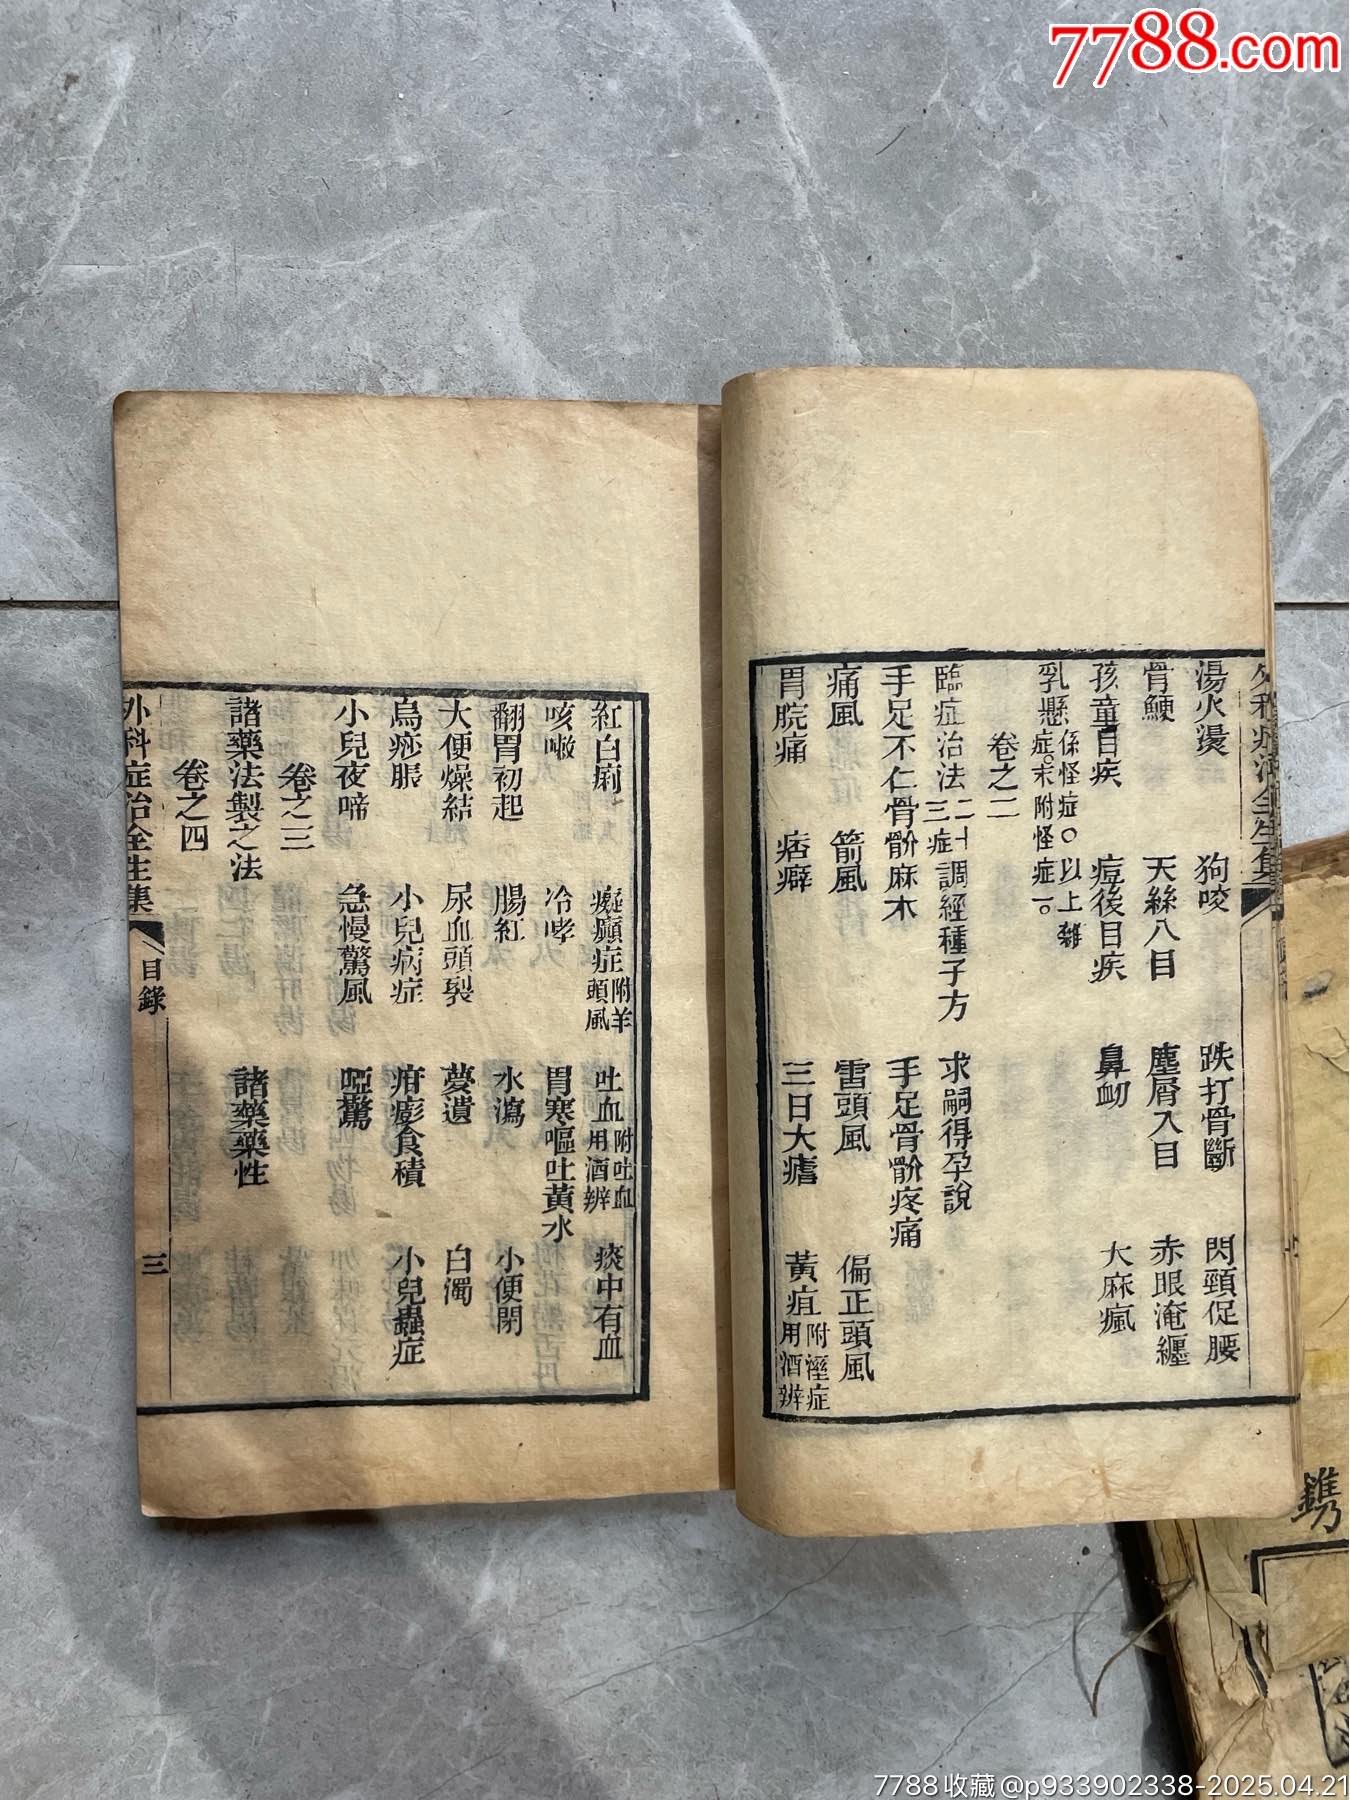 7788.com
外科症治全生集
湯火燙 狗咬 跌打骨斷 閃頸促腰
骨鯁 天絲入目 塵屑入目 赤眼淹纏
孩童目疾 痘後目疾 鼻衂 大麻瘋
乳懸係怪症○以上雜症○末附怪症一○
卷之二
臨症治法二十三症 調經種子方 求嗣得孕說
手足不仁骨骱麻木 手足骨骱疼痛
痛風 箭風 雷頭風 偏正頭風
胃脘痛 痞癖 三日大瘧 黃疸附溼症用酒辨
紅白痢 癡癲症附羊頭風 吐血附吐血用酒辨 痰中有血
咳嗽 冷哮 胃寒嘔吐黃水
翻胃初起 腸紅 水瀉 小便閉
大便燥結 尿血頭裂 夢遺 白濁
烏痧脹 小兒病症 疳膨食積 小兒蟲症
小兒夜啼 急慢驚風 啞驚
卷之三
諸藥法製之法 諸藥藥性
卷之四
外科症治全生集 目錄 三
鐫
7788收藏@p933902338-2025.04.21